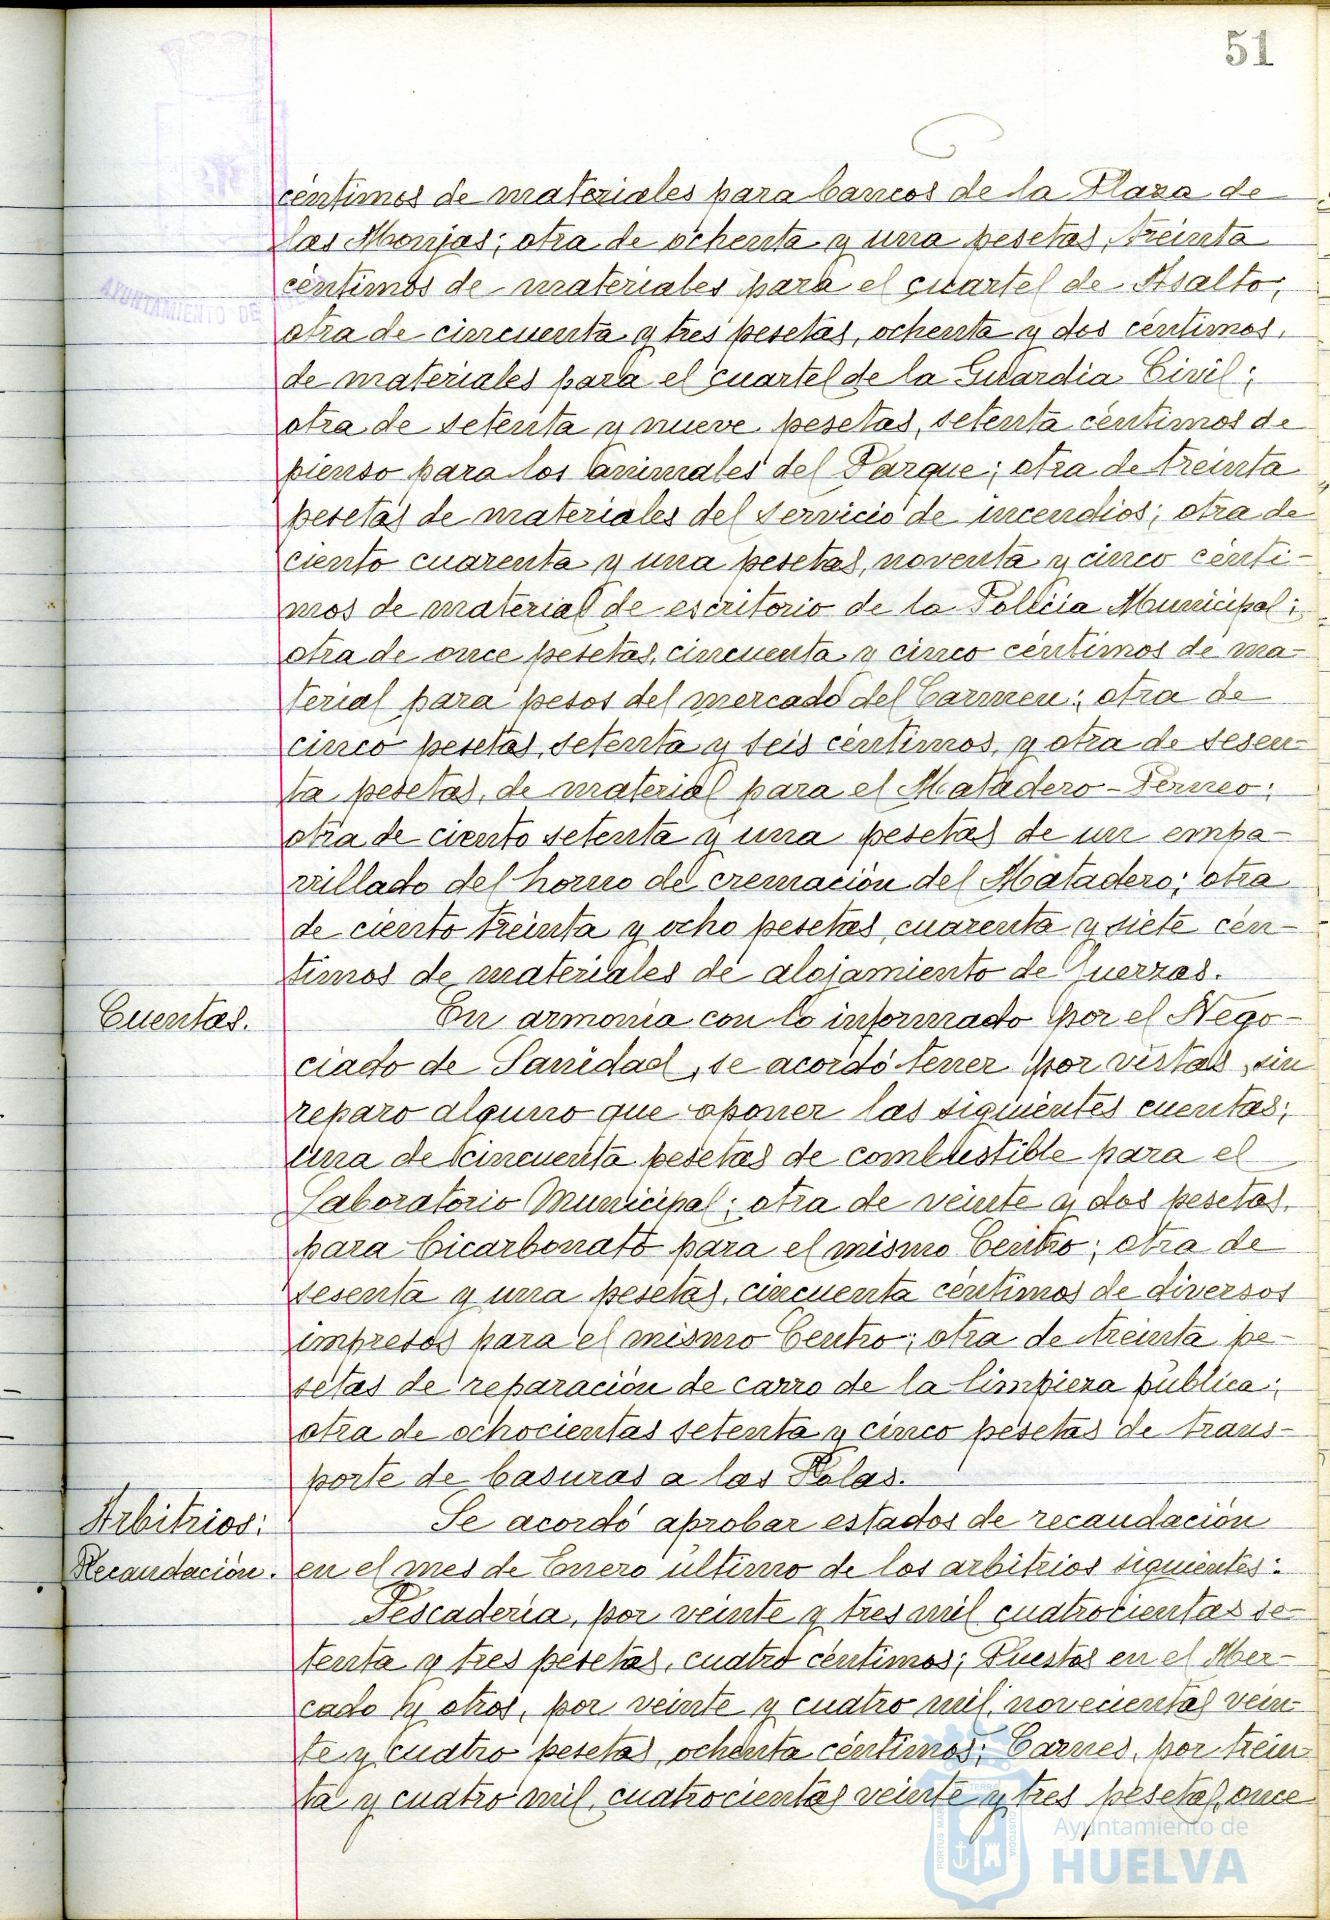 51
céntimos de materiales para bancos de la Plaza de
las Monjas; otra de ochenta y una pesetas, treinta
céntimos de materiales para el cuartel de Asalto;
otra de cincuenta y tres pesetas, ochenta y dos céntimos,
de materiales para el cuartel de la Guardia Civil;
otra de setenta y nueve pesetas, setenta céntimos de
pienso para los animales del Parque; otra de treinta
pesetas de materiales del servicio de incendios; otra de
ciento cuarenta y una pesetas, noventa y cinco cénti-
mos de material de escritorio de la Policia Municipal;
otra de once pesetas, cincuenta y cinco céntimos de ma-
terial para pesos del mercado del Carmen; otra de
cinco pesetas, setenta y seis céntimos, y otra de sesen-
ta pesetas, de material para el Matadero-Perneo;
otra de ciento setenta y una pesetas de un empa-
rrillado del horno de cremación del Matadero; otra
de ciento treinta y ocho pesetas, cuarenta y siete cén-
timos de materiales de alojamiento de Guerras.
Cuentas. En armonía con lo informado por el Nego-
ciado de Sanidad, se acordó tener por vistas, sin
reparo alguno que oponer las siguientes cuentas;
una de cincuenta pesetas de combustible para el
Laboratorio Municipal; otra de veinte y dos pesetas,
para bicarbonato para el mismo Centro; otra de
sesenta y una pesetas, cincuenta céntimos de diversos
impresos para el mismo Centro; otra de treinta pe-
setas de reparación de carro de la limpieza pública;
otra de ochocientas setenta y cinco pesetas de trans-
porte de basuras a las Palas.
Arbitrios: Se acordó aprobar estados de recaudación
Recaudación. en el mes de Enero último de los arbitrios siguientes:
Pescadería, por veinte y tres mil cuatrocientas se-
tenta y tres pesetas, cuatro céntimos; Puestos en el Mer-
cado y otros, por veinte y cuatro mil, novecientas vein-
te y cuatro pesetas, ochenta céntimos; Carnes, por trein-
ta y cuatro mil, cuatrocientas veinte y tres pesetas, once
AYUNTAMIENTO DE
PORTUS MARIS ET TERRAE CUSTODIA
Ayuntamiento de
HUELVA